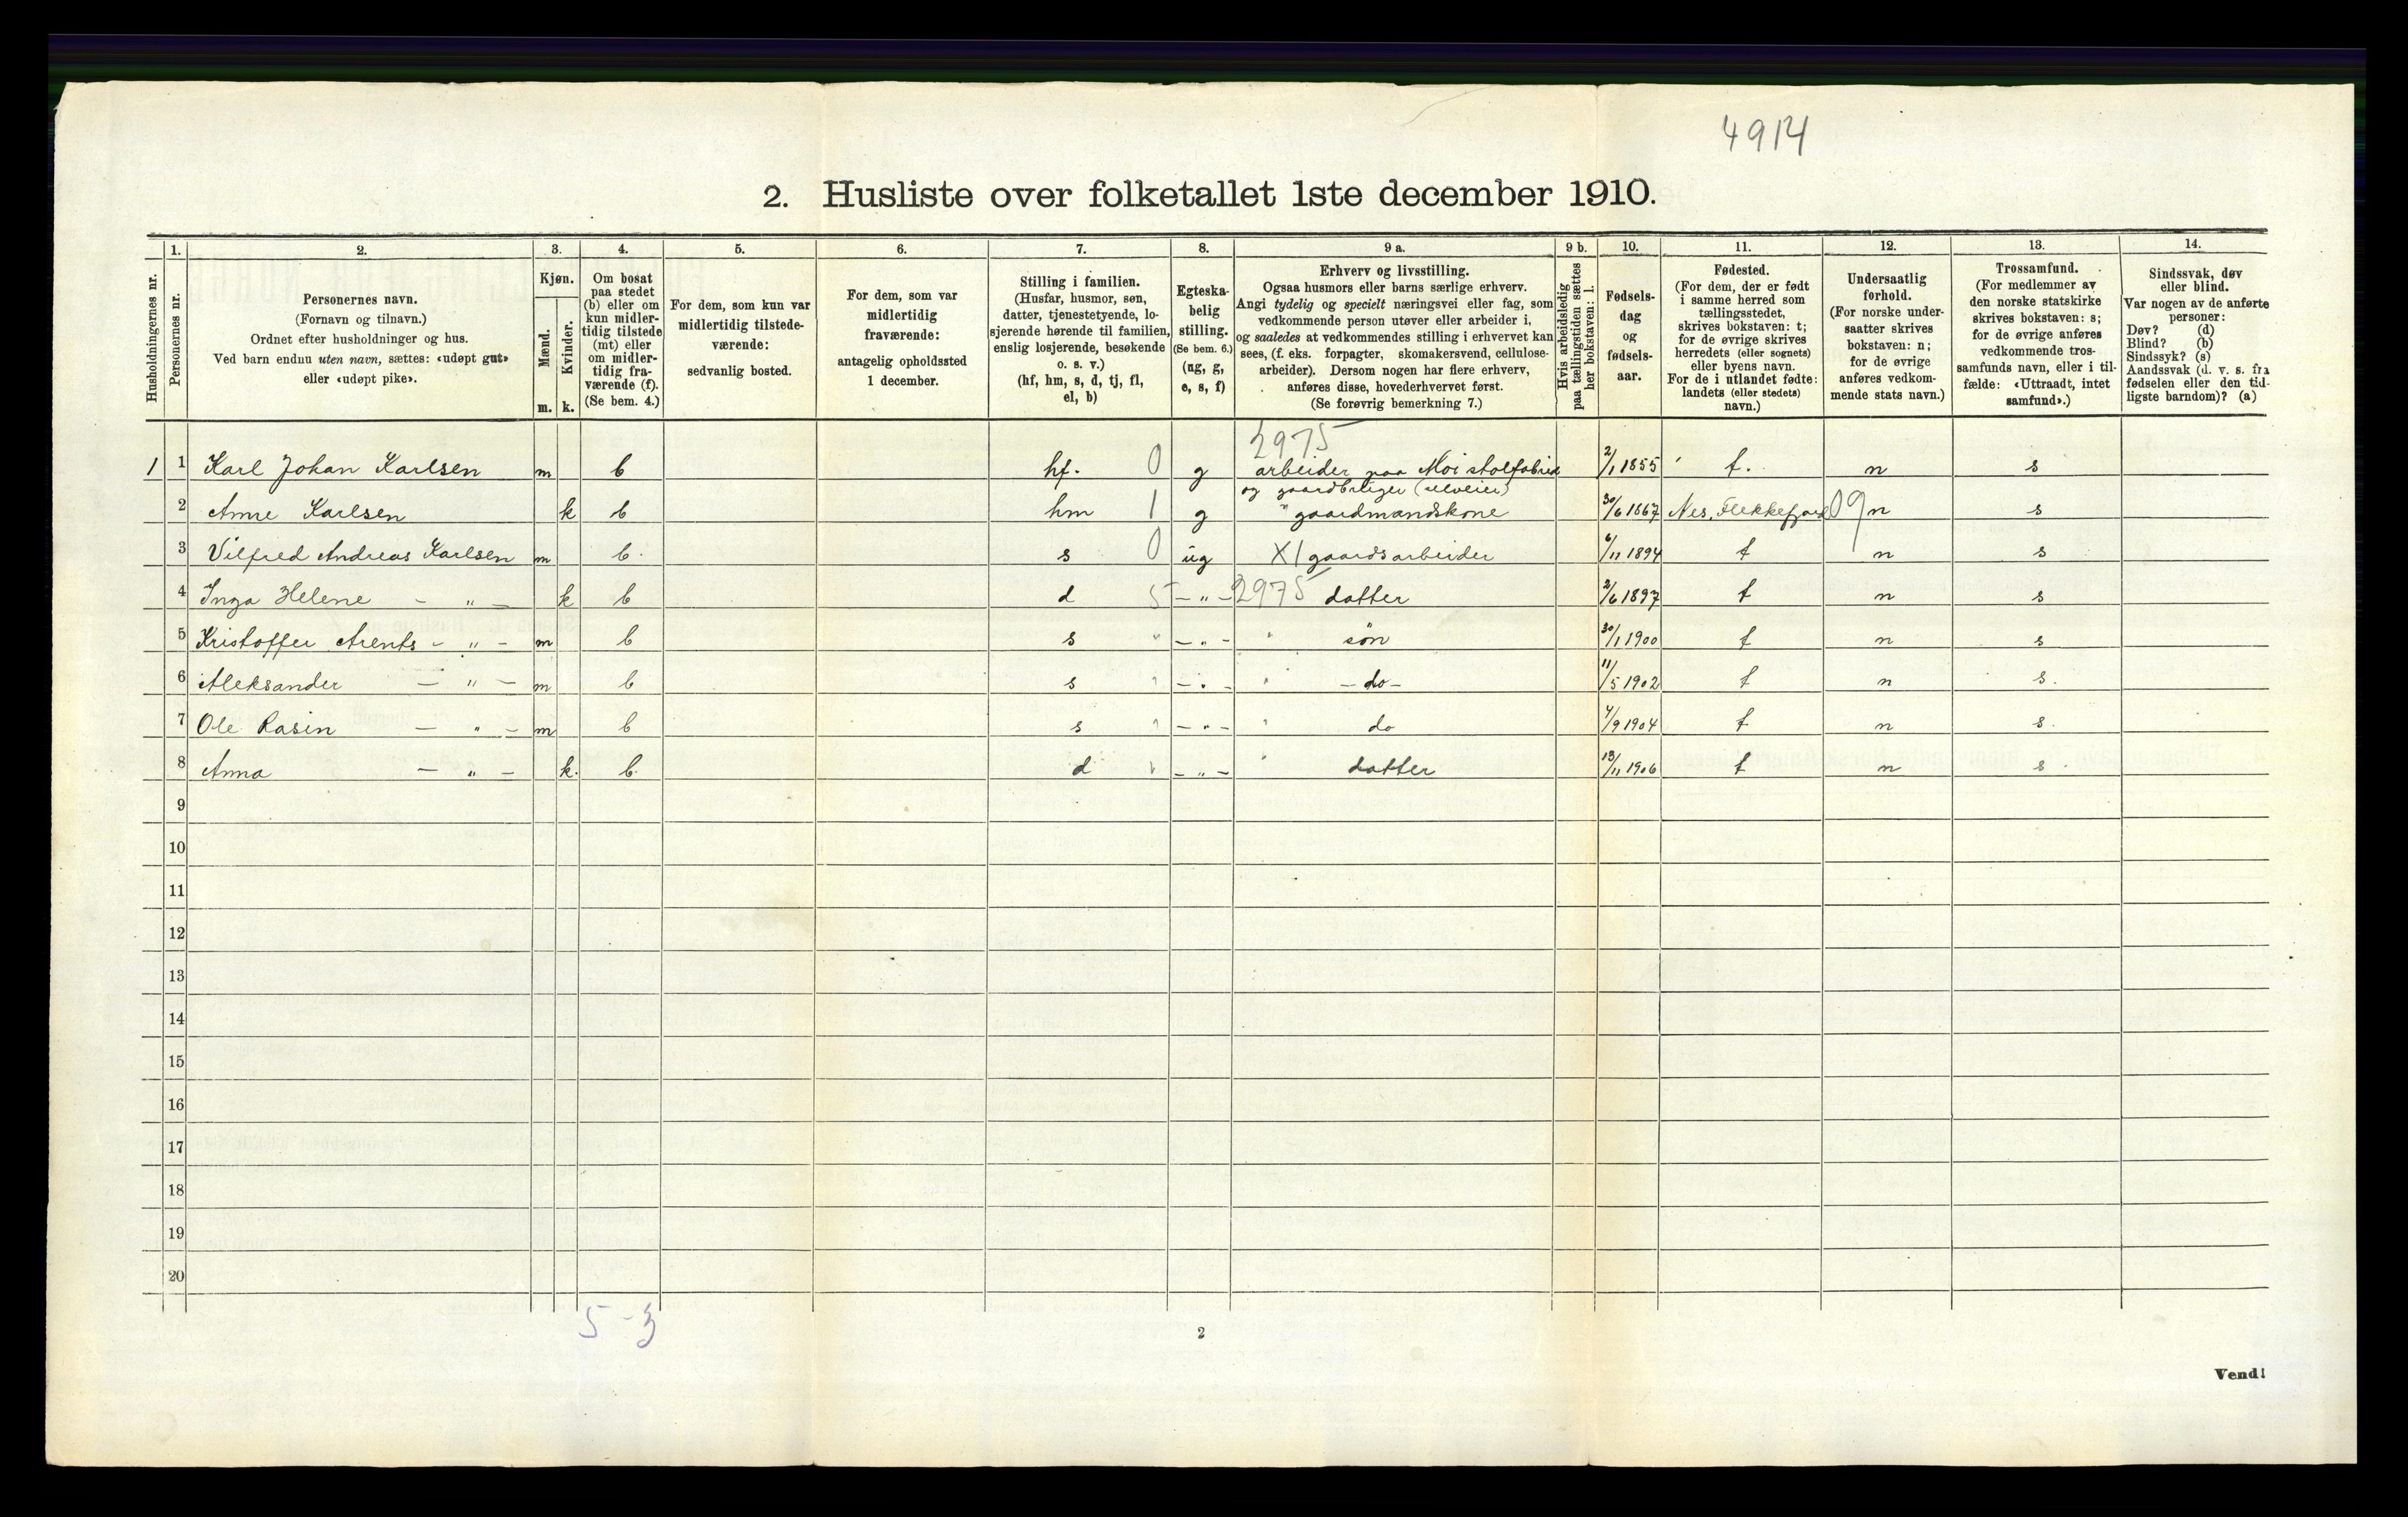 4914
2. Husliste over folketallet 1ste december 1910.
Husholdningernes nr.
1.
Personernes nr.
2.
Personernes navn.
(Fornavn og tilnavn.)
Ordnet efter husholdninger og hus.
Ved barn endnu uten navn, sættes: «udøpt gut»
eller «udøpt pike».
3.
Kjøn.
Mænd.
Kvinder.
m. k.
4.
Om bosat
paa stedet
(b) eller om
kun midler-
tidig tilstede
(mt) eller
om midler-
tidig fra-
værende (f).
(Se bem. 4.)
5.
For dem, som kun var
midlertidig tilstede-
værende:
sedvanlig bosted.
6.
For dem, som var
midlertidig
fraværende:
antagelig opholdssted
1 december.
7.
Stilling i familien.
(Husfar, husmor, søn,
datter, tjenestetyende, lo-
sjerende hørende til familien,
enslig losjerende, besøkende
o. s. v.)
(hf, hm, s, d, tj, fl,
el, b)
8.
Egteska-
belig
stilling.
(Se bem. 6.)
(ug, g,
e, s, f)
9 a.
Erhverv og livsstilling.
Ogsaa husmors eller barns særlige erhverv.
Angi tydelig og specielt næringsvei eller fag, som
vedkommende person utøver eller arbeider i,
og saaledes at vedkommendes stilling i erhvervet kan
sees, (f. eks. forpagter, skomakersvend, cellulose-
arbeider). Dersom nogen har flere erhverv,
anføres disse, hovederhvervet først.
(Se forøvrig bemerkning 7.)
9 b.
Hvis arbeidsledig
paa tællingstiden sættes
her bokstaven: l.
10.
Fødsels-
dag
og
fødsels-
aar.
11.
Fødested.
(For dem, der er født
i samme herred som
tællingsstedet,
skrives bokstaven: t;
for de øvrige skrives
herredets (eller sognets)
eller byens navn.
For de i utlandet fødte:
landets (eller stedets)
navn.)
12.
Undersaatlig
forhold.
(For norske under-
saatter skrives
bokstaven: n;
for de øvrige
anføres vedkom-
mende stats navn.)
13.
Trossamfund.
(For medlemmer av
den norske statskirke
skrives bokstaven: s;
for de øvrige anføres
vedkommende tros-
samfunds navn, eller i til-
fælde: «Uttraadt, intet
samfund».)
14.
Sindssvak, døv
eller blind.
Var nogen av de anførte
personer:
Døv? (d)
Blind? (b)
Sindssyk? (s)
Aandssvak (d. v. s. fra
fødselen eller den tid-
ligste barndom)? (a)
2975
1 1 Karl Johan Karlsen m b hf. 0 g arbeider paa Moi stolfabrik 2/1 1855 t. n s
og gaardbruger (selveier)
2 Anne Karlsen k b hm 1 g " gaardmandskone 30/6 1867 Nes, Flekkefjord 09 n s
3 Vilfred Andreas Karlsen m b. s 0 ug X1 gaardsarbeider 6/11 1894 t n s
4 Inga Helene - " - k b d 5 - " - 2975 datter 2/6 1897 t n s
5 Kristoffer Arents - " - m b s " - " - " søn 30/1 1900 t n s
6 Aleksander - " - m b s " - " - " - do - 11/5 1902 t n s.
7 Ole Rasin - " - m b s " - " - " do 4/9 1904 t n s.
8 Anna - " - k. b. d " - " - " datter 13/11 1906 t n s.
9
10
11
12
13
14
15
16
17
18
19
20
5-3
2
Vend!